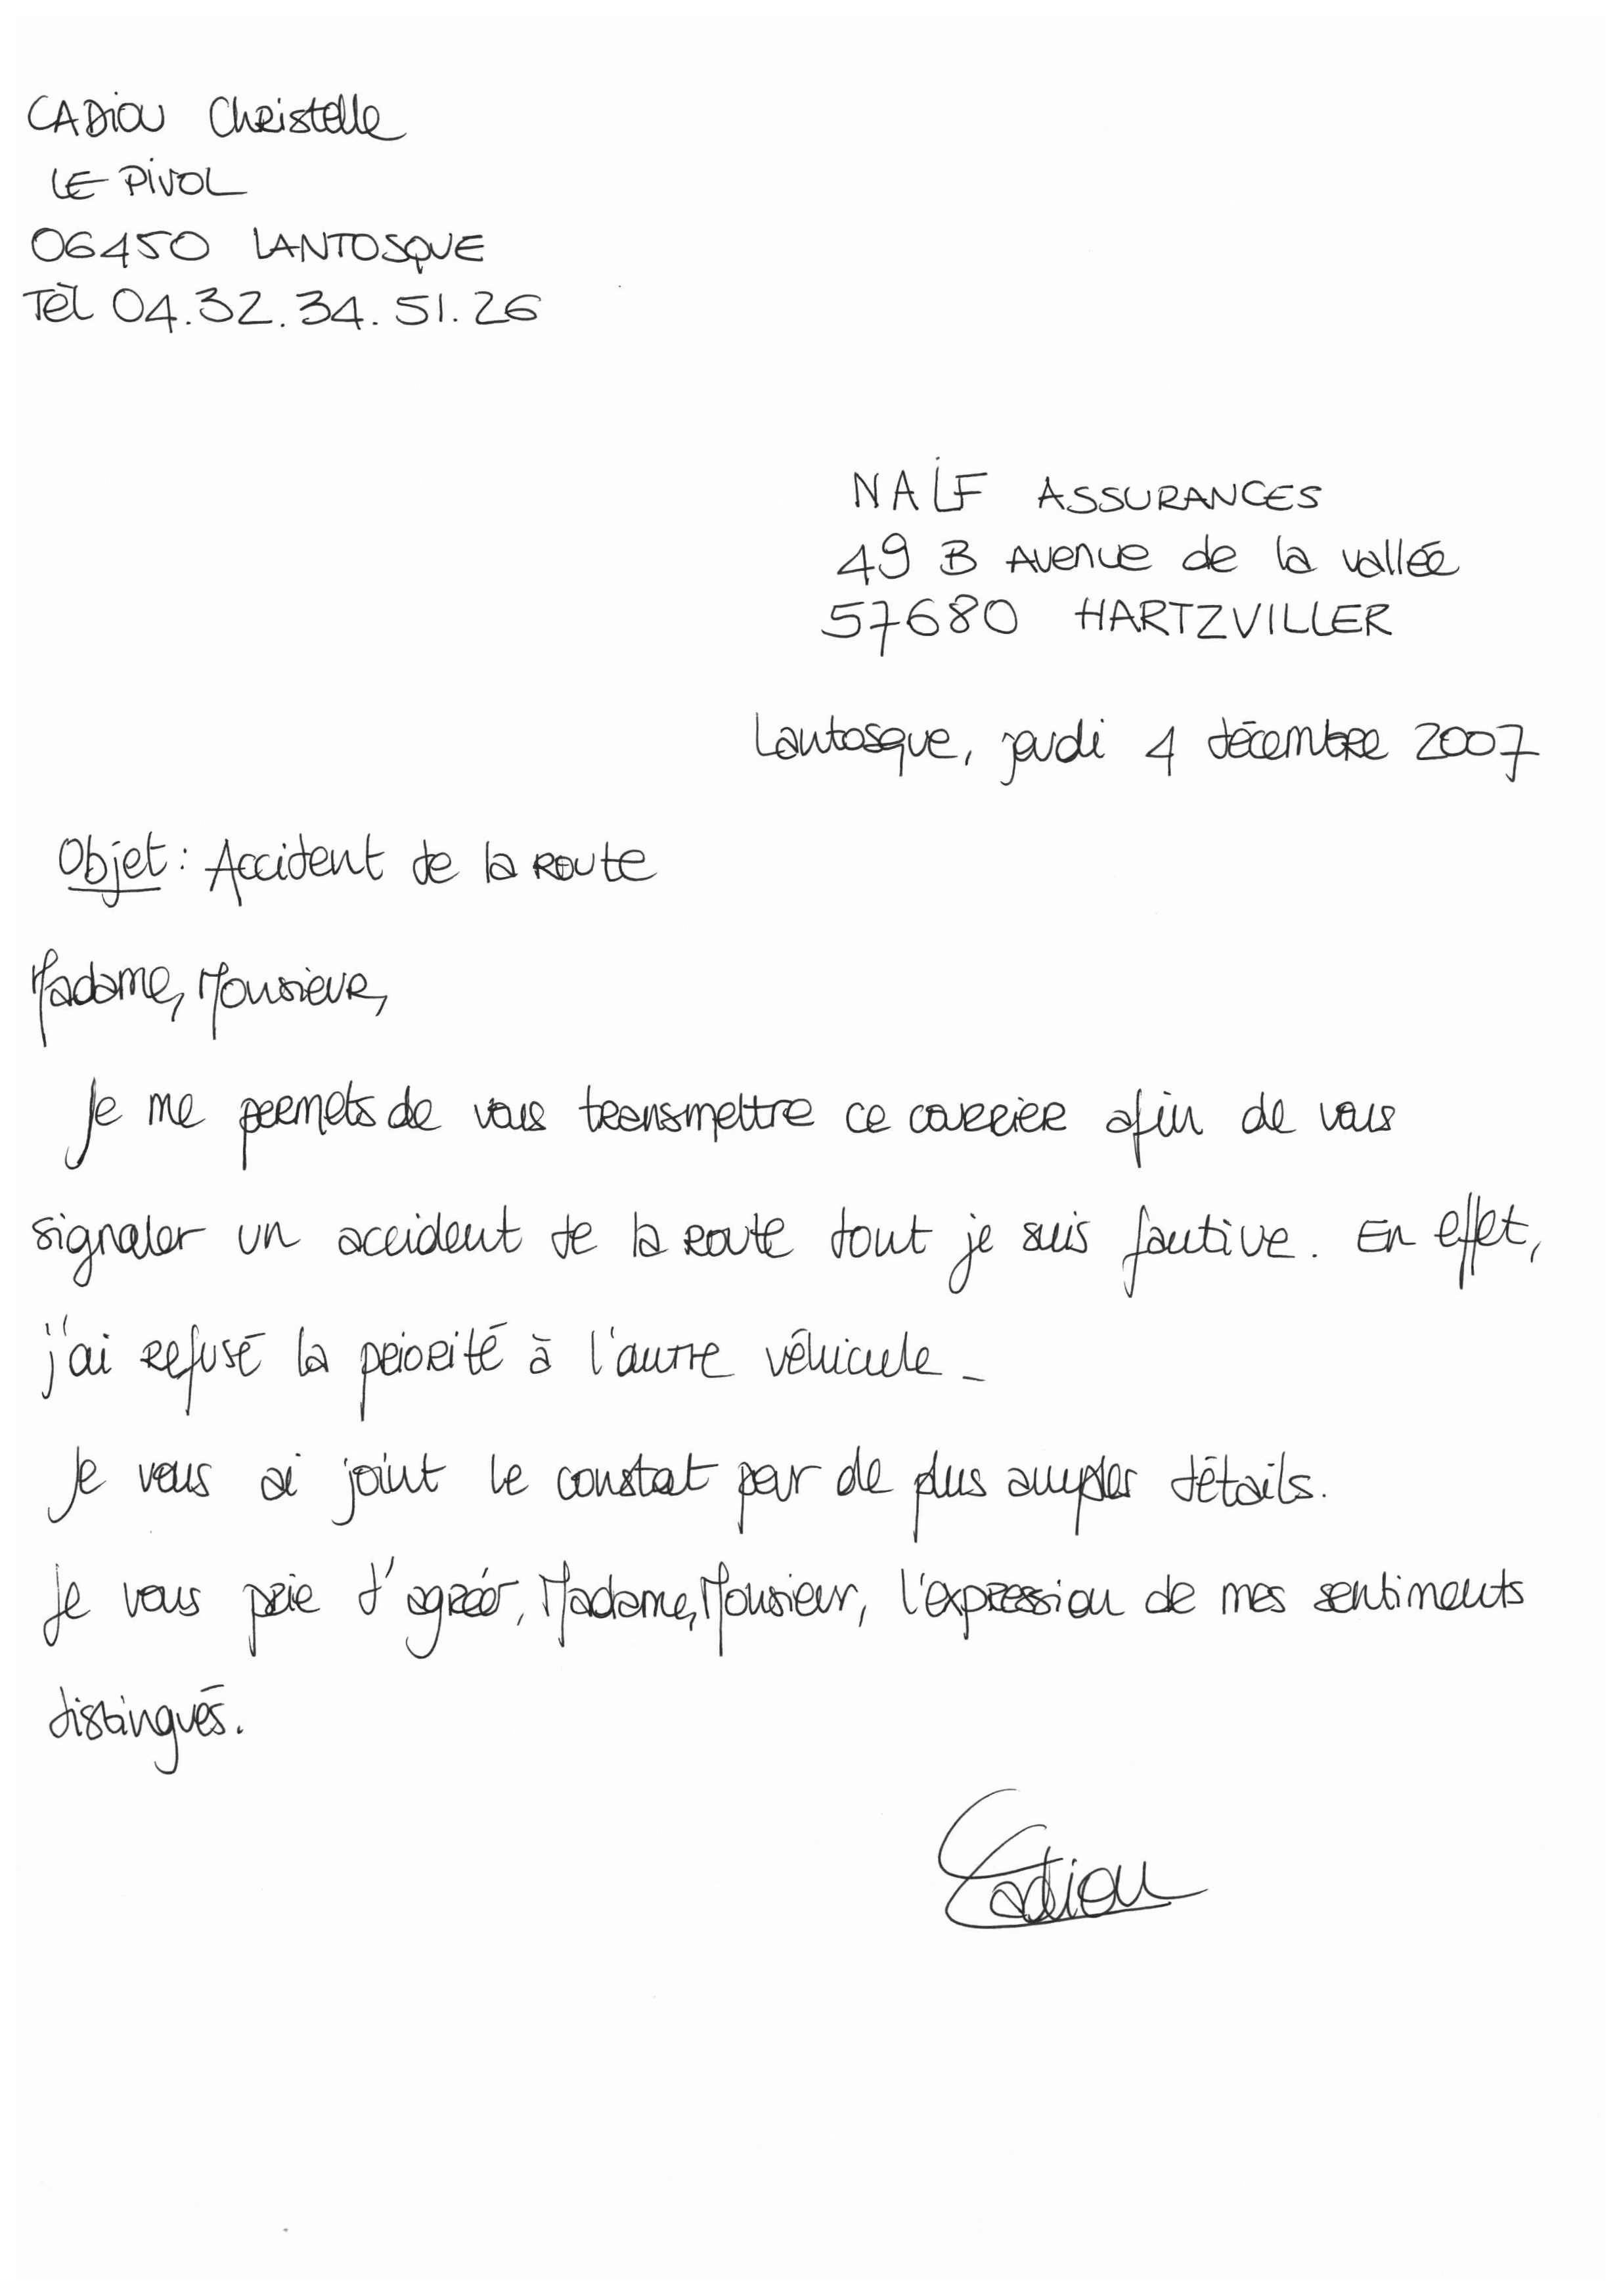 CADiOU Christelle
LE PiVOL
06450 LANTOSQUE
Tèl 04.32.34.51.26
NAÏF ASSURANCES
49 B Avenue de la vallée
57680 HARTZVILLER
Lantosque, jeudi 4 décembre 2007
Objet : Accident de la route
Madame, Monsieur,
Je me permets de vous transmettre ce courrier afin de vous
signaler un accident de la route dont je suis fautive. En effet,
j'ai refusé la priorité à l'autre véhicule.
Je vous ai joint le constat par de plus amples détails.
Je vous prie d'agréér, Madame, Monsieur, l'expression de mes sentiments
distingués.
Cadiou